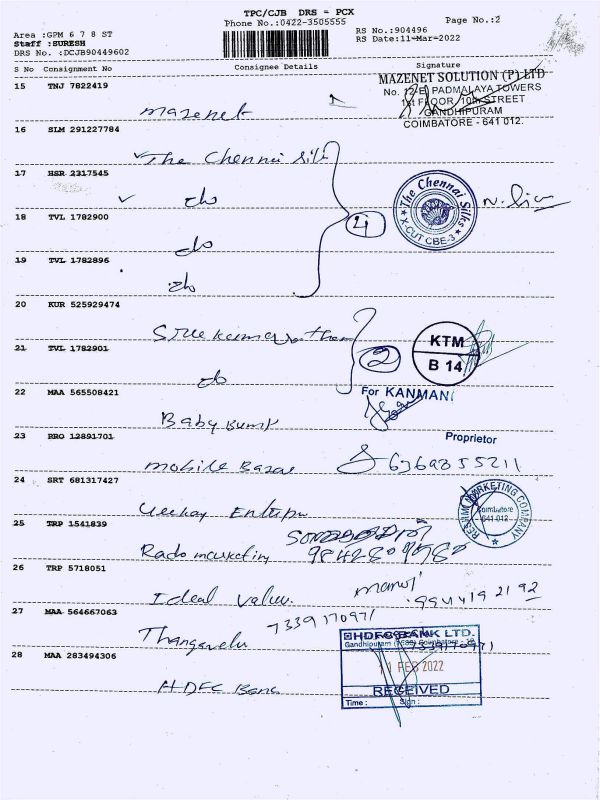 TPC/CJB DRS = PCX
Phone No.:0422-3505555
Page No.:2
Area :GPM 6 7 8 ST
Staff :SURESH
DRS No. :DCJB90449602
RS No.:904496
RS Date:11-Mar-2022
S No Consignment No Consignee Details Signature
15 TNJ 7822419
mazenet
MAZENET SOLUTION (P) LTD
No. 12-E, PADMALAYA TOWERS
1st FLOOR, 10th STREET
GANDHIPURAM
COIMBATORE - 641 012.
16 SLM 291227784
The Chennai Silk
17 HSR 2317545
do
18 TVL 1782900
do
4
The Chennai Silks
X-CUT CBE-3
19 TVL 1782896
do
20 KUR 525929474
21 TVL 1782901
do
2
KTM
B 14
22 MAA 565508421
Baby Bump
For KANMANI
Proprietor
23 PRO 12891701
mobile Bazar
6369855211
24 SRT 681317427
MARKETING COMPANY
Coimbatore
641 012
25 TRP 1541839
Rado marketing
26 TRP 5718051
Ideal value.
manoj
9944192192
27 MAA 564667063
Thangavelu
7339170971
28 MAA 283494306
HDFC Bank
HDFC BANK LTD.
7339170971
11 FEB 2022
RECEIVED
Time : Sign :